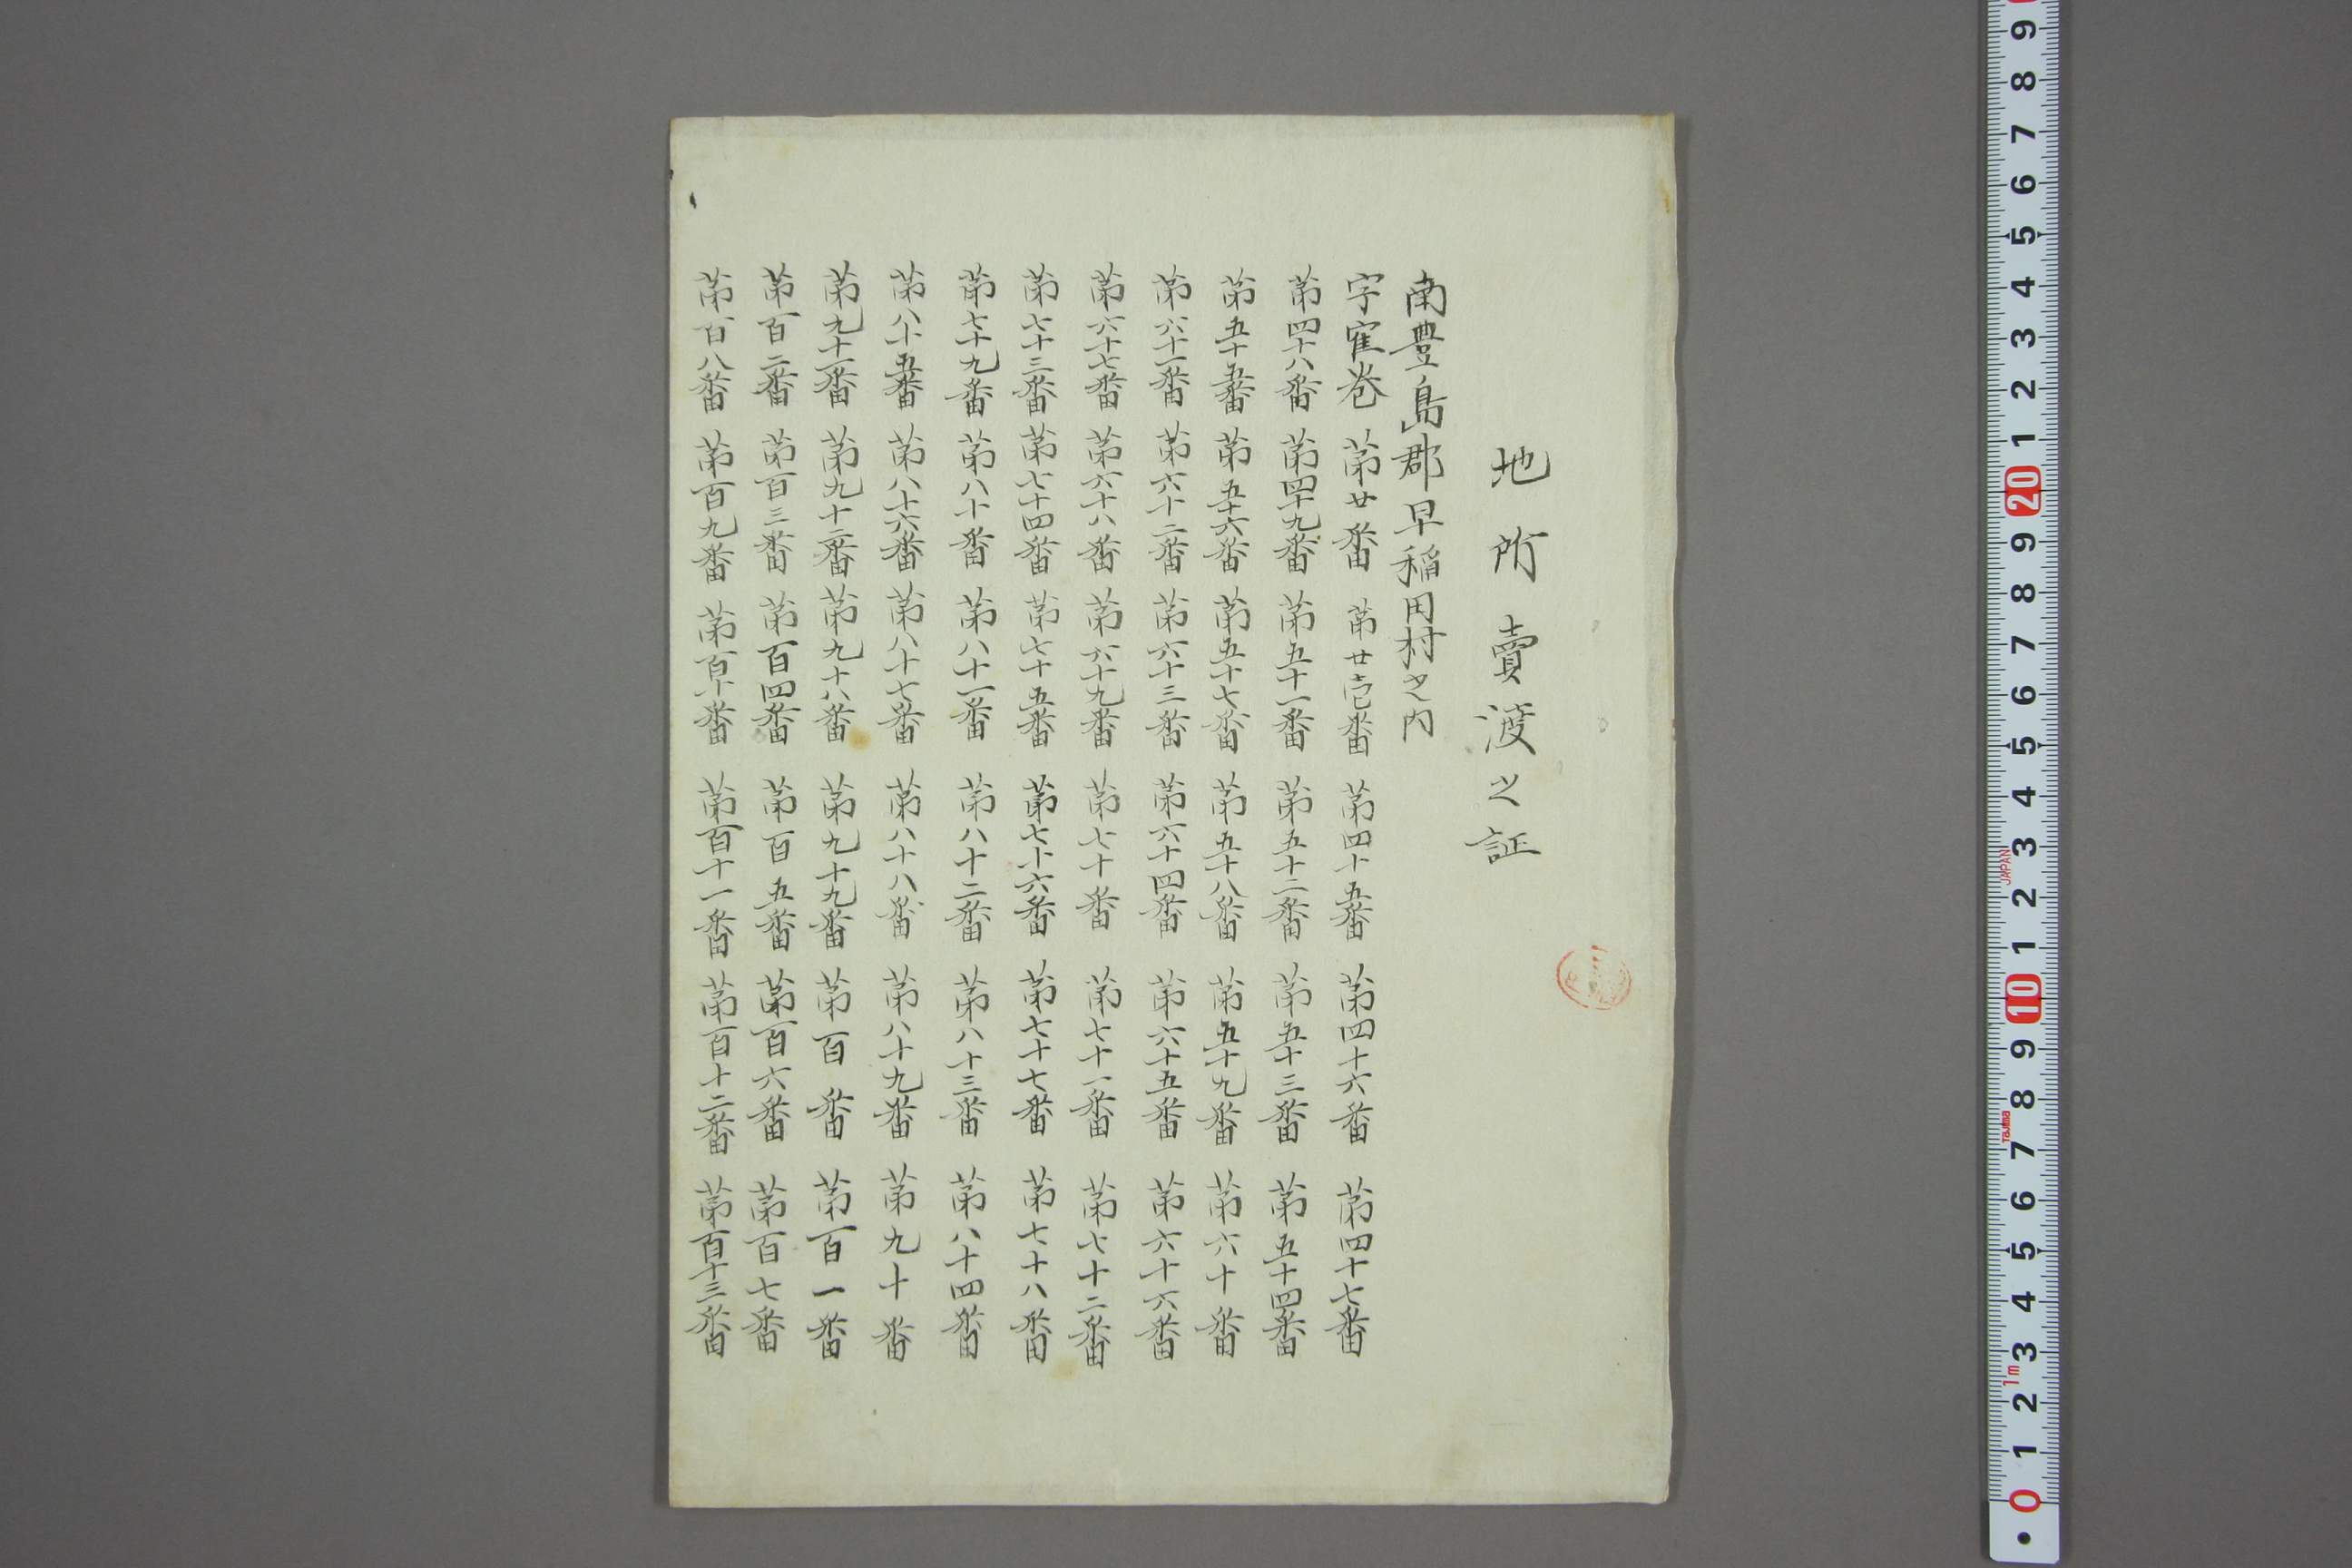 地所賣渡之証
南豊島郡早稲田村之内
字寉巻 第廿番 第廿壱番 第四十五番 第四十六番 第四十七番
第四十八番 第四十九番 第五十一番 第五十二番 第五十三番 第五十四番
第五十五番 第五十六番 第五十七番 第五十八番 第五十九番 第六十番
第六十一番 第六十二番 第六十三番 第六十四番 第六十五番 第六十六番
第六十七番 第六十八番 第六十九番 第七十番 第七十一番 第七十二番
第七十三番 第七十四番 第七十五番 第七十六番 第七十七番 第七十八番
第七十九番 第八十番 第八十一番 第八十二番 第八十三番 第八十四番
第八十五番 第八十六番 第八十七番 第八十八番 第八十九番 第九十番
第九十一番 第九十二番 第九十八番 第九十九番 第百番 第百一番
第百二番 第百三番 第百四番 第百五番 第百六番 第百七番
第百八番 第百九番 第百十番 第百十一番 第百十二番 第百十三番
9 8 7 6 5 4 3 2 1 20 9 8 7 6 5 4 3 2 1 10 9 8 7 6 5 4 3 2 1 0
JAPAN
Tajima
1m